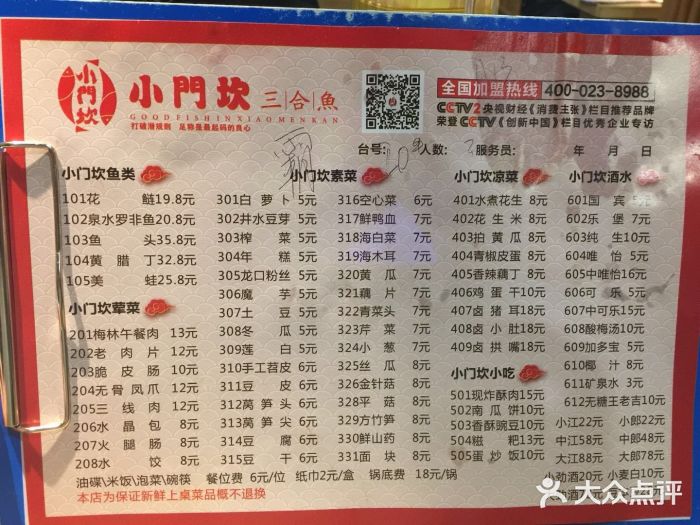 小門坎
小門坎 三合魚
GOODFISHINXIAOMENKAN
打破潜规则 足称是最起码的良心
全国加盟热线 400-023-8988
CCTV2央视财经《消费主张》栏目推荐品牌
荣登CCTV《创新中国》栏目优秀企业专访
台号: 人数: 服务员: 年 月 日
小门坎鱼类
101花 鲢19.8元
102泉水罗非鱼20.8元
103鱼 头35.8元
104黄 腊 丁32.8元
105美 蛙25.8元
小门坎荤菜
201梅林午餐肉 13元
202老 肉 片 12元
203脆 皮 肠 10元
204无骨凤爪 12元
205三 线 肉 12元
206水 晶 包 8元
207火 腿 肠 8元
208水 饺 8元
小门坎素菜
301白 萝 卜 5元
302井水豆芽 5元
303榨 菜 5元
304年 糕 5元
305龙口粉丝 5元
306魔 芋 5元
307土 豆 5元
308冬 瓜 5元
309莲 白 5元
310手工苕皮 6元
311豆 皮 6元
312莴 笋 头 6元
313莴 笋 尖 6元
314豆 腐 6元
315豆 干 6元
316空心菜 6元
317鲜鸭血 7元
318海白菜 7元
319海木耳 7元
320黄 瓜 7元
321藕 片 7元
322青菜头 7元
323芹 菜 7元
324小 葱 7元
325丝 瓜 8元
326金针菇 8元
328平 菇 8元
329方竹笋 8元
330鲜山药 8元
331面 块 8元
小门坎凉菜
401水煮花生 8元
402花 生 米 8元
403拍 黄 瓜 8元
404青椒皮蛋 8元
405香辣藕丁 8元
406鸡 蛋 干10元
407卤 猪 耳18元
408卤 小 肚18元
409卤 拱 嘴18元
小门坎小吃
501现炸酥肉15元
502南 瓜 饼10元
503香酥豌豆10元
504糍 粑13元
505蛋 炒 饭10元
小门坎酒水
601国 宾 5元
602乐 堡 7元
603纯 生10元
604唯 怡 5元
605中唯怡16元
606可 乐 5元
607中可乐15元
608酸梅汤10元
609加多宝 5元
610椰 汁 8元
611矿泉水 3元
612无糖王老吉10元
小江22元 小郎22元
中江58元 中郎48元
大江88元 大郎78元
小劲酒20元 小麦白10元
油碟\米饭\泡菜\碗筷 餐位费 6元/位 纸巾2元/盒 锅底费 18元/锅
本店为保证新鲜上桌菜品概不退换
大众点评